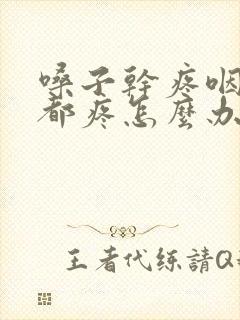 嗓子幹疼咽
都疼怎麼办
王者代练請Q